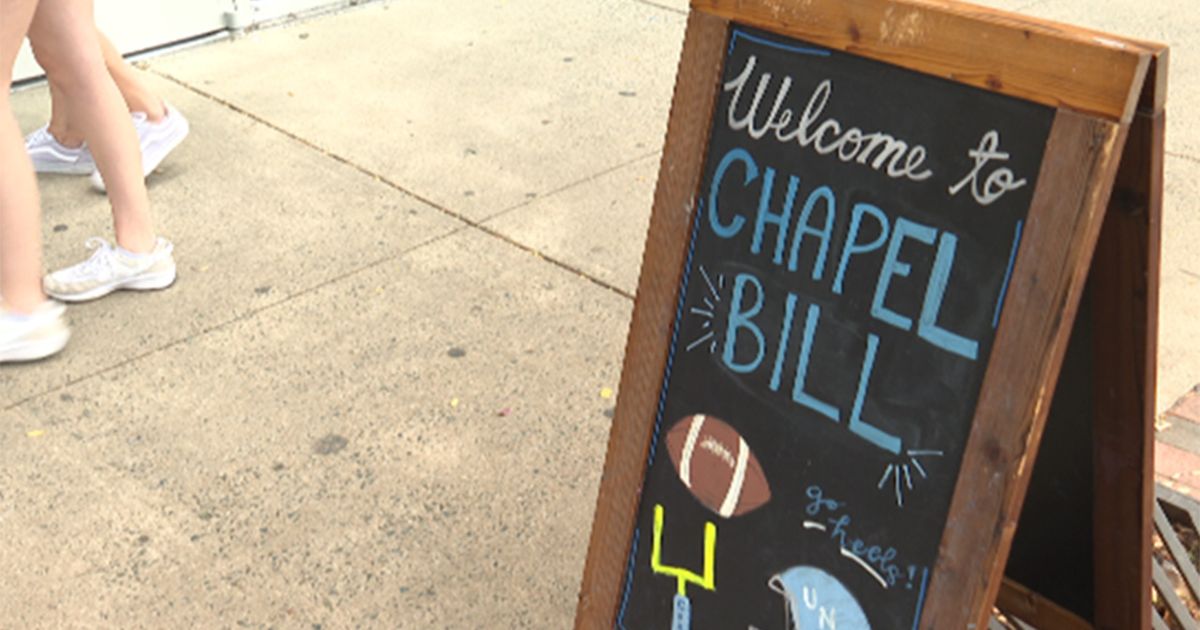 Welcome to
CHAPEL
BILL
go
heels!
UN